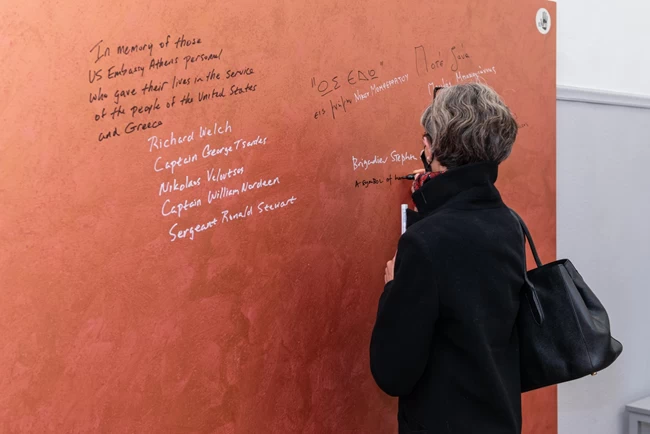 In memory of those
US Embassy Athens personel
who gave their lives in the service
of the people of the United States
and Greece
Richard Welch
Captain George Tsantes
Nikolaos Veloutsos
Captain William Nordeen
Sergeant Ronald Stewart
"ΩΣ ΕΔΩ"
Ποτέ ξανά
Brigadier Stephen
A symbol of